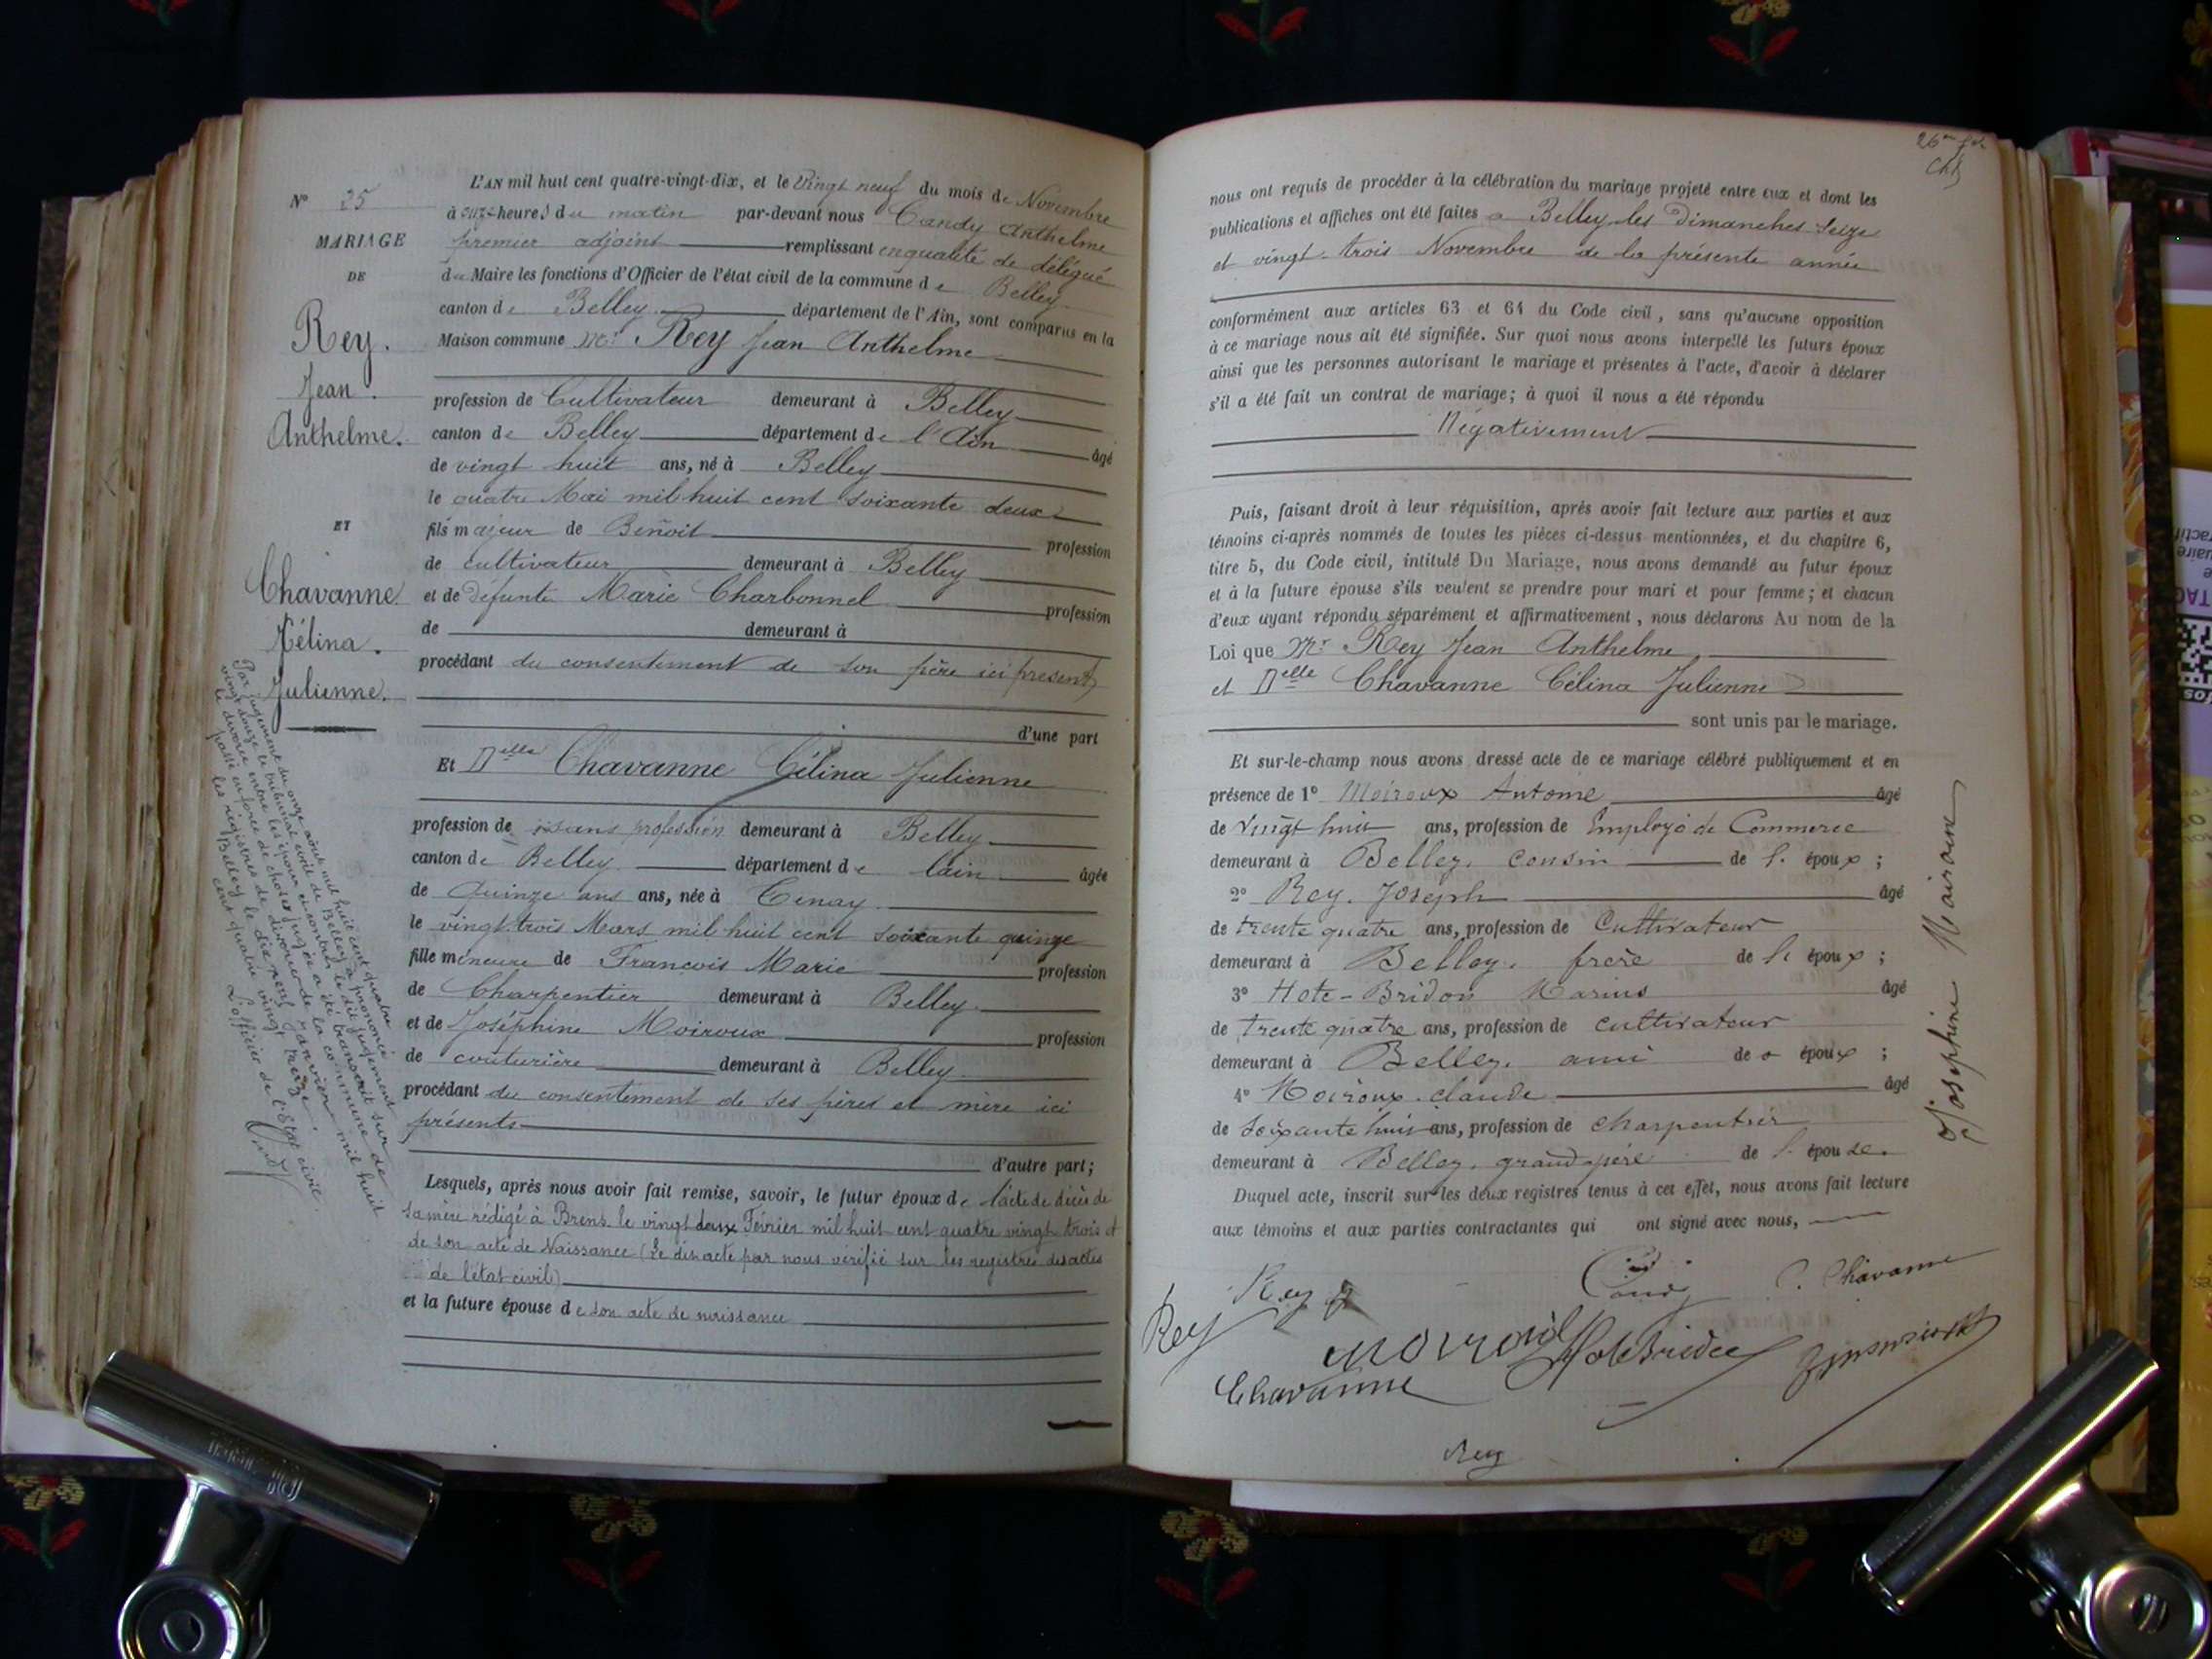 N° 25
MARIAGE
DE
Rey.
Jean.
Anthelme.
ET
Chavanne
Célina.
Julienne.
Par jugement du onze août mil huit cent quatre
vingt douze le tribunal civil de Belley a prononcé
le divorce entre les époux ci-contre, le dit jugement
passé en force de chose jugée a été transcrit sur
les registres de divorce de la commune de
Belley le dix neuf janvier mil huit
cent quatre vingt treize.
L'officier de l'Etat civil
L'AN mil huit cent quatre-vingt-dix, et le Vingt neuf du mois de Novembre
à onze heures du matin par-devant nous Candy Anthelme
premier adjoint remplissant en qualité de délégué
du Maire les fonctions d'Officier de l'état civil de la commune de Belley
canton de Belley département de l'Ain, sont comparus en la
Maison commune Mr Rey Jean Anthelme
profession de Cultivateur demeurant à Belley
canton de Belley département de l'Ain âgé
de vingt huit ans, né à Belley
le quatre Mai mil huit cent soixante deux
fils majeur de Benoit profession
de cultivateur demeurant à Belley
et de défunte Marie Charbonnel profession
de demeurant à
procédant du consentement de son père ici présent
d'une part
Et Delle Chavanne Célina Julienne
profession de sans profession demeurant à Belley
canton de Belley département de lain âgée
de quinze ans ans, née à Tenay
le vingt trois Mars mil huit cent soixante quinze
fille mineure de François Marie profession
de Charpentier demeurant à Belley
et de Joséphine Moiroux profession
de couturière demeurant à Belley
procédant du consentement de ses pères et mère ici
présents
d'autre part;
Lesquels, après nous avoir fait remise, savoir, le futur époux de l'acte de décès de
sa mère rédigé à Brens le vingt deux Février mil huit cent quatre vingt trois et
de son acte de Naissance (Le dit acte par nous vérifié sur les registres des actes
de l'état civil)
et la future épouse de son acte de naissance
nous ont requis de procéder à la célébration du mariage projeté entre eux et dont les
publications et affiches ont été faites à Belley les Dimanches Seize
et vingt trois Novembre de la présente année
conformément aux articles 63 et 64 du Code civil, sans qu'aucune opposition
à ce mariage nous ait été signifiée. Sur quoi nous avons interpellé les futurs époux
ainsi que les personnes autorisant le mariage et présentes à l'acte, d'avoir à déclarer
s'il a été fait un contrat de mariage; à quoi il nous a été répondu
Négativement
Puis, faisant droit à leur réquisition, après avoir fait lecture aux parties et aux
témoins ci-après nommés de toutes les pièces ci-dessus mentionnées, et du chapitre 6,
titre 5, du Code civil, intitulé Du Mariage, nous avons demandé au futur époux
et à la future épouse s'ils veulent se prendre pour mari et pour femme; et chacun
d'eux ayant répondu séparément et affirmativement, nous déclarons Au nom de la
Loi que Mr Rey Jean Anthelme
et Delle Chavanne Célina Julienne
sont unis par le mariage.
Et sur-le-champ nous avons dressé acte de ce mariage célébré publiquement et en
présence de 1° Moiroux Antoine âgé
de Vingt huit ans, profession de Employé de Commerce
demeurant à Belley, cousin de l' époux;
2° Rey. Joseph âgé
de trente quatre ans, profession de Cultivateur
demeurant à Belley. frère de l' époux;
3° Hote-Bridon Marius âgé
de trente quatre ans, profession de cultivateur
demeurant à Belley. ami de époux;
4° Moiroux. claude âgé
de Soixante huit ans, profession de charpentier
demeurant à Belley. grand-père de l' épouse.
Duquel acte, inscrit sur les deux registres tenus à cet effet, nous avons fait lecture
aux témoins et aux parties contractantes qui ont signé avec nous,
Rey J
Candy
C. Chavanne
Rey
Chavanne
Rey
Joséphine